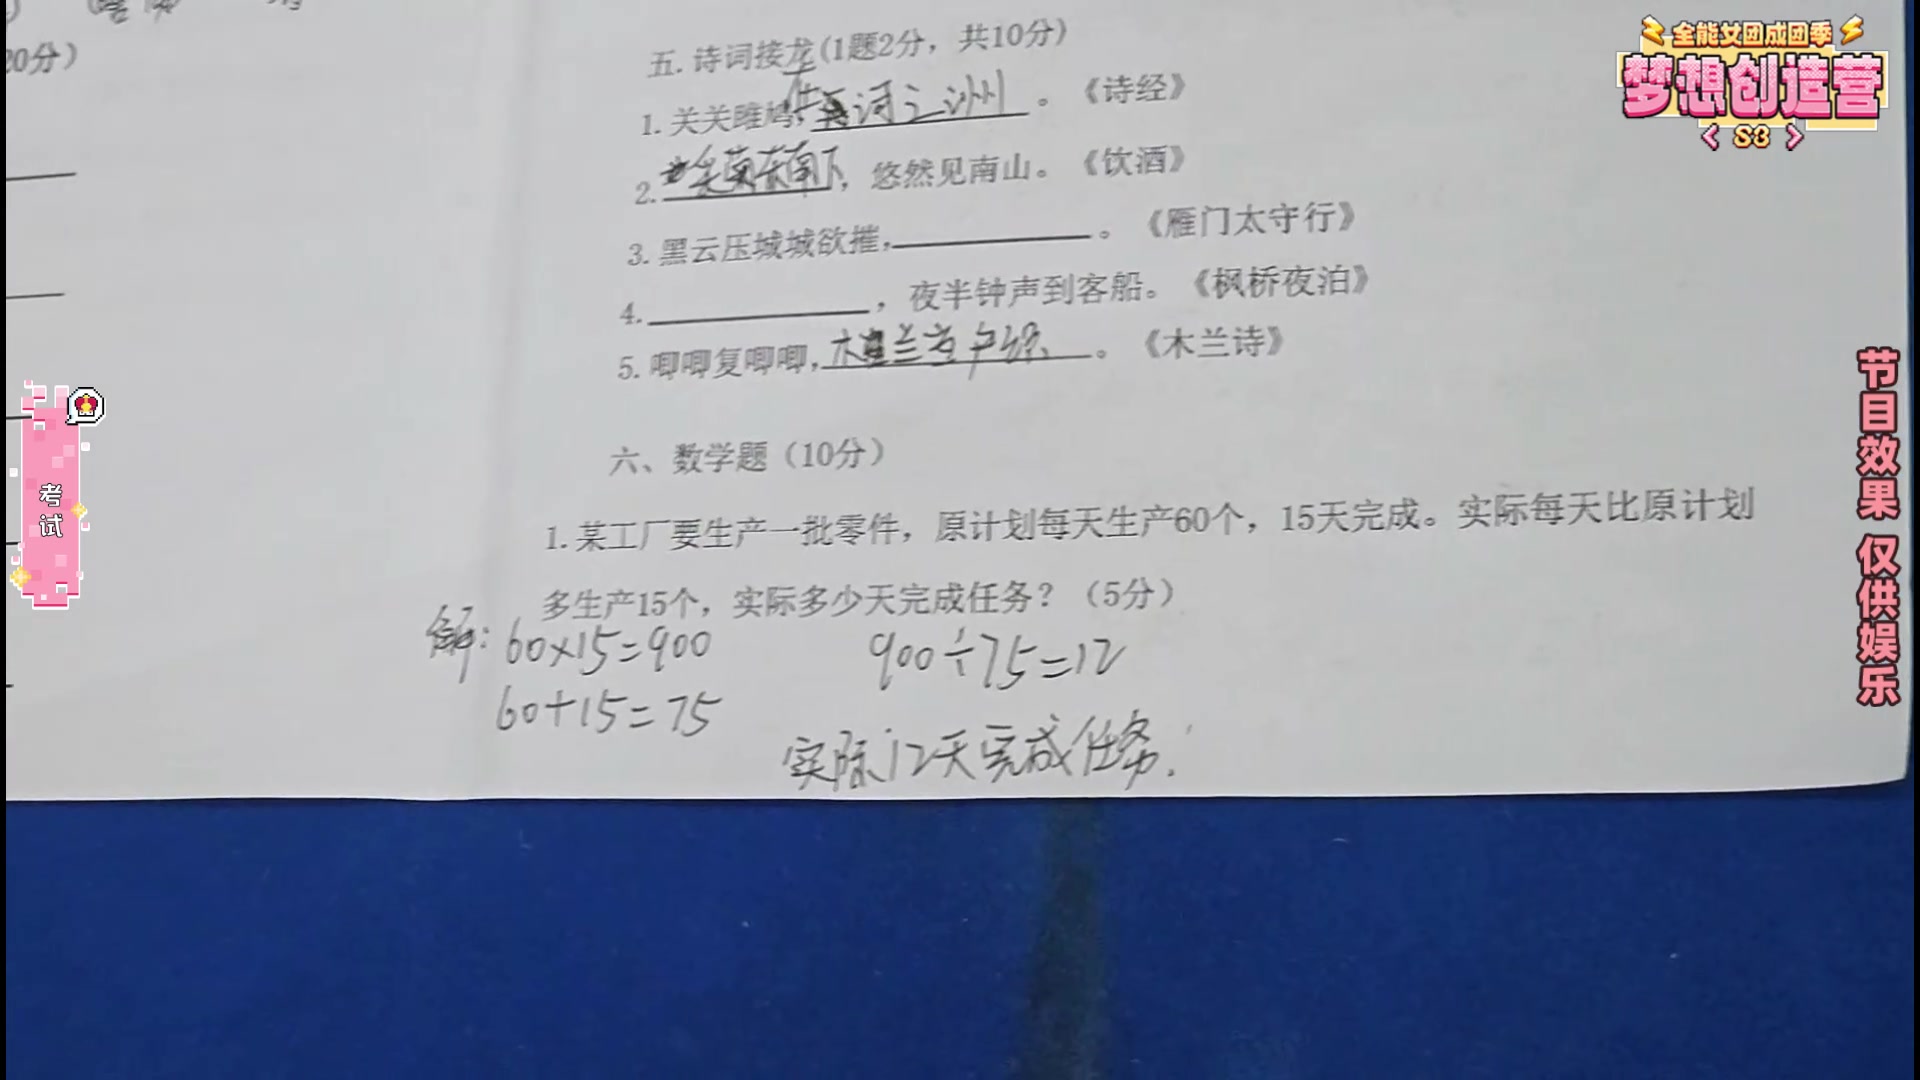 全能女团成团季
梦想创造营
S3
20分）
五.诗词接龙(1题2分，共10分)
1.关关雎鸠，在河之洲。《诗经》
2.，悠然见南山。《饮酒》
3.黑云压城城欲摧，。《雁门太守行》
4.，夜半钟声到客船。《枫桥夜泊》
5.唧唧复唧唧，木兰当户织。《木兰诗》
六、数学题（10分）
1.某工厂要生产一批零件，原计划每天生产60个，15天完成。实际每天比原计划
多生产15个，实际多少天完成任务？（5分）
解：60×15=900
900÷75=12
60+15=75
实际12天完成任务.
考试
节目效果 仅供娱乐